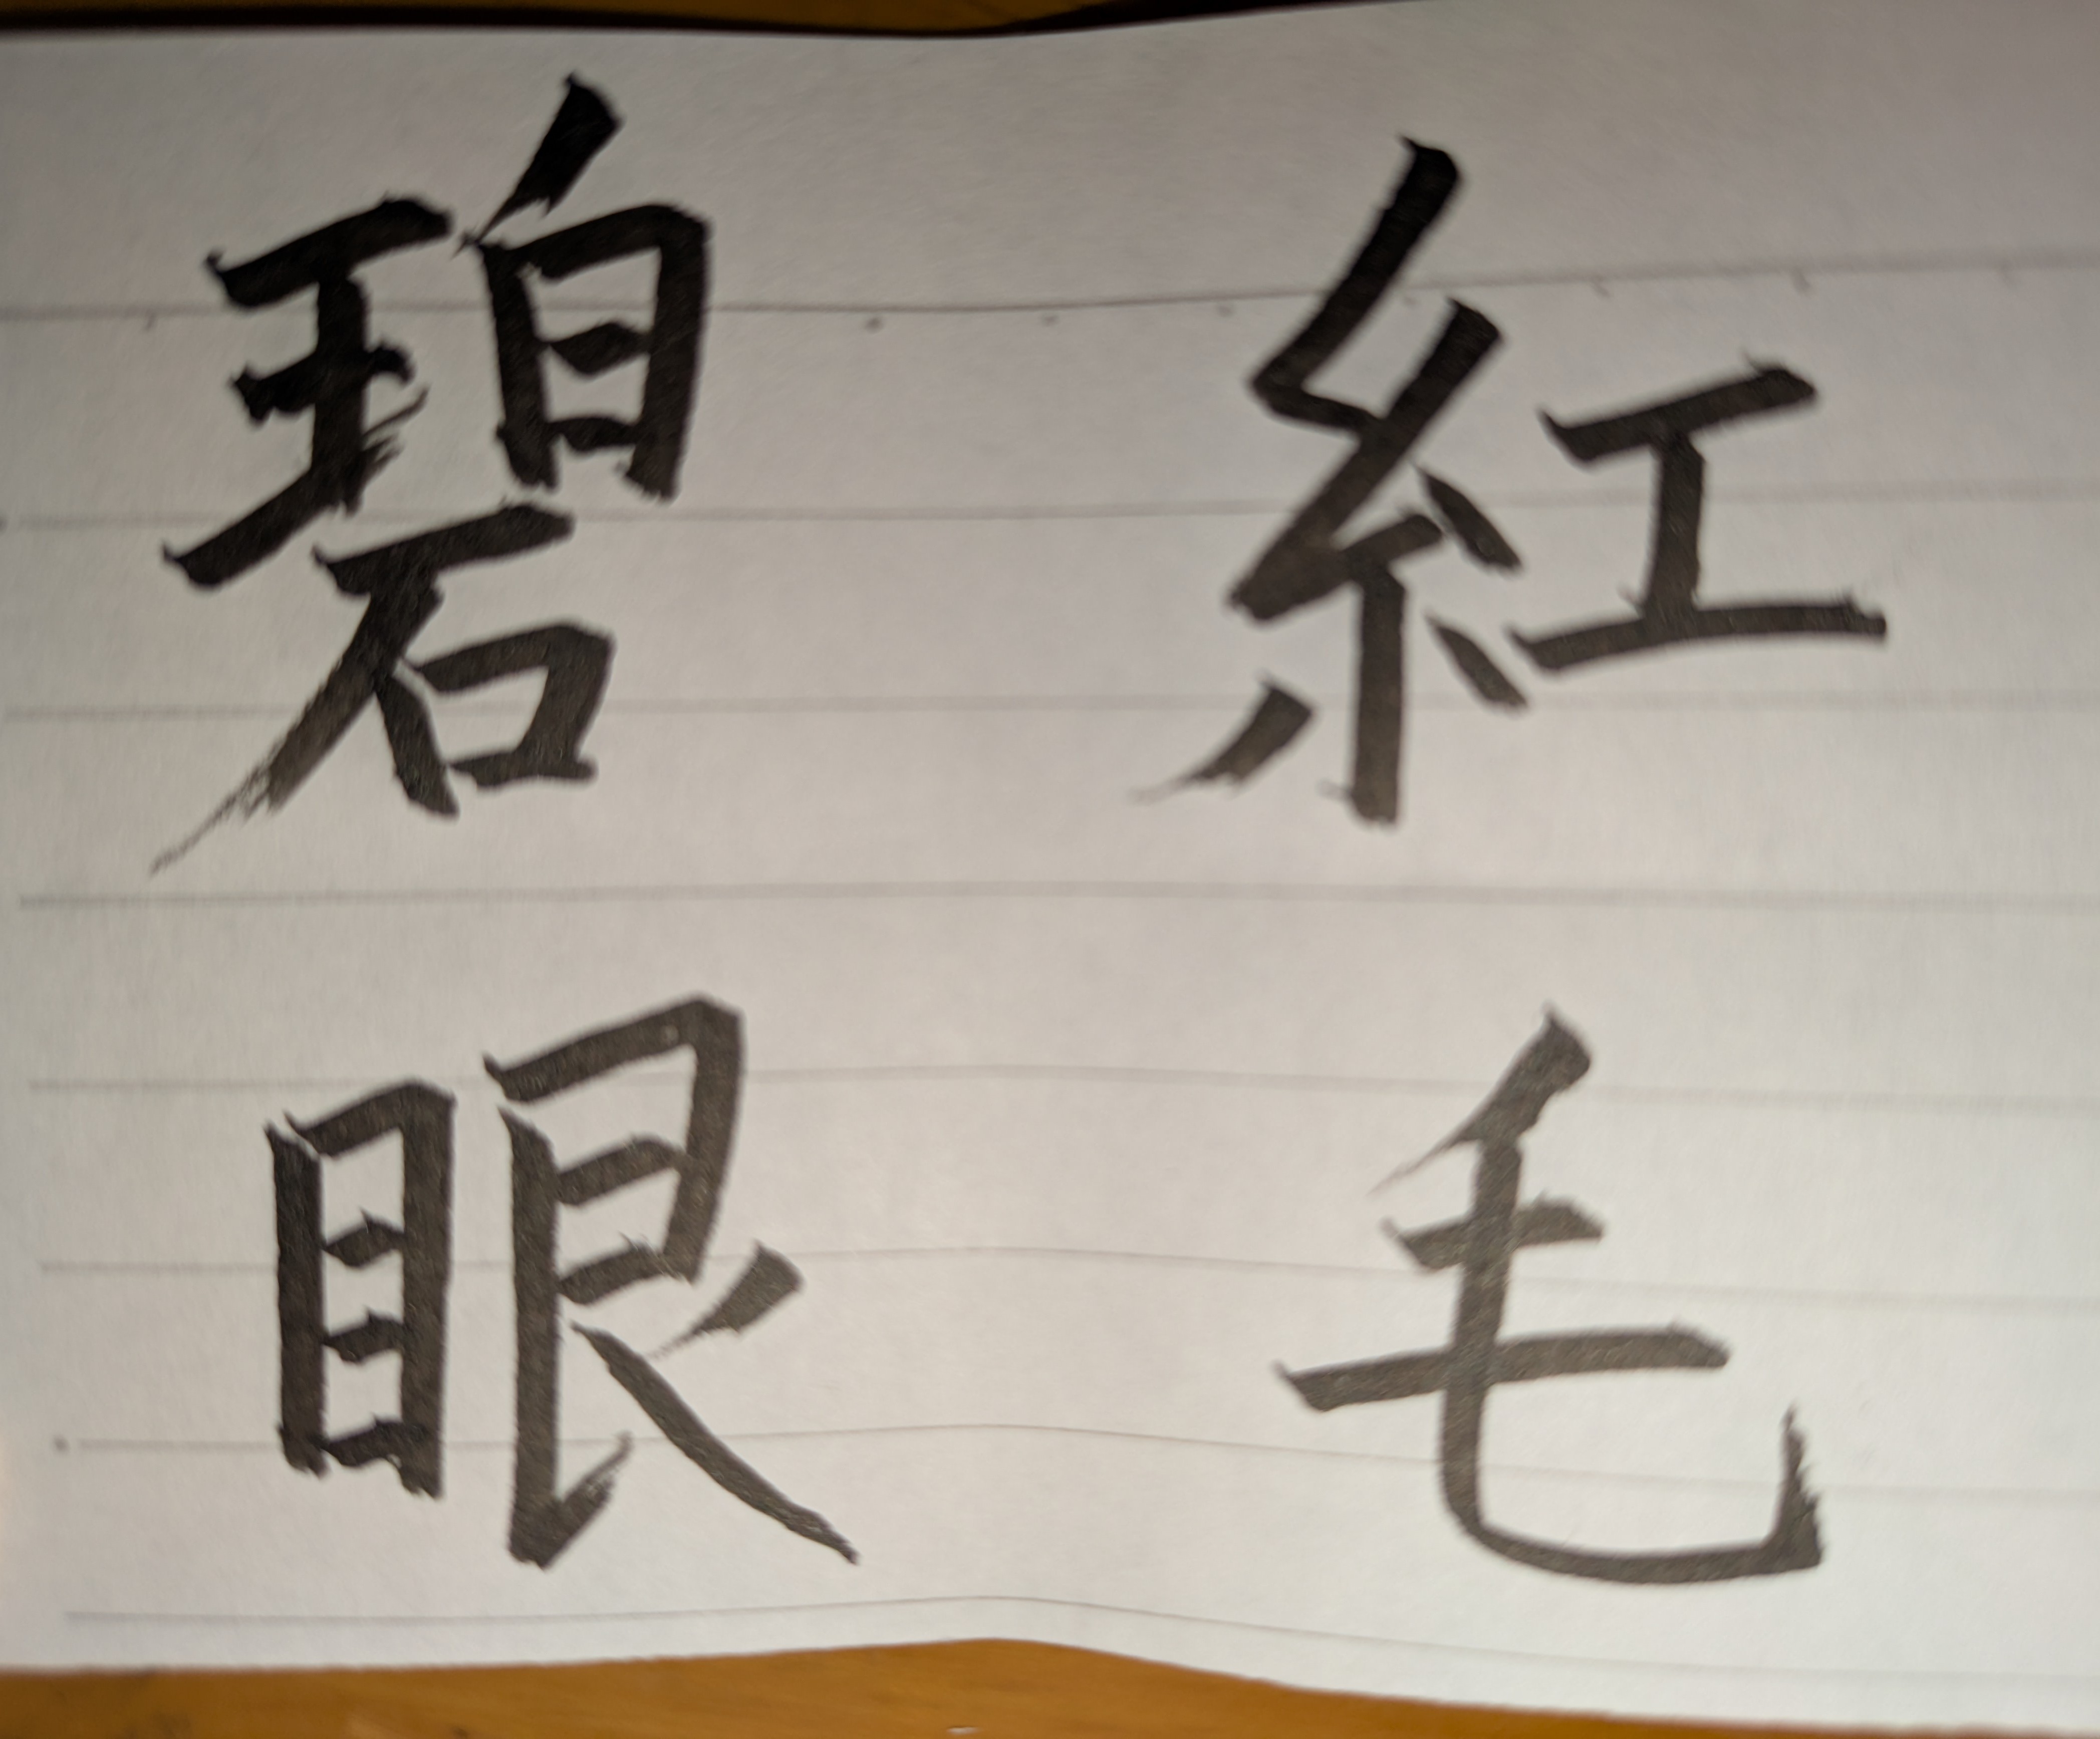 紅毛
碧眼